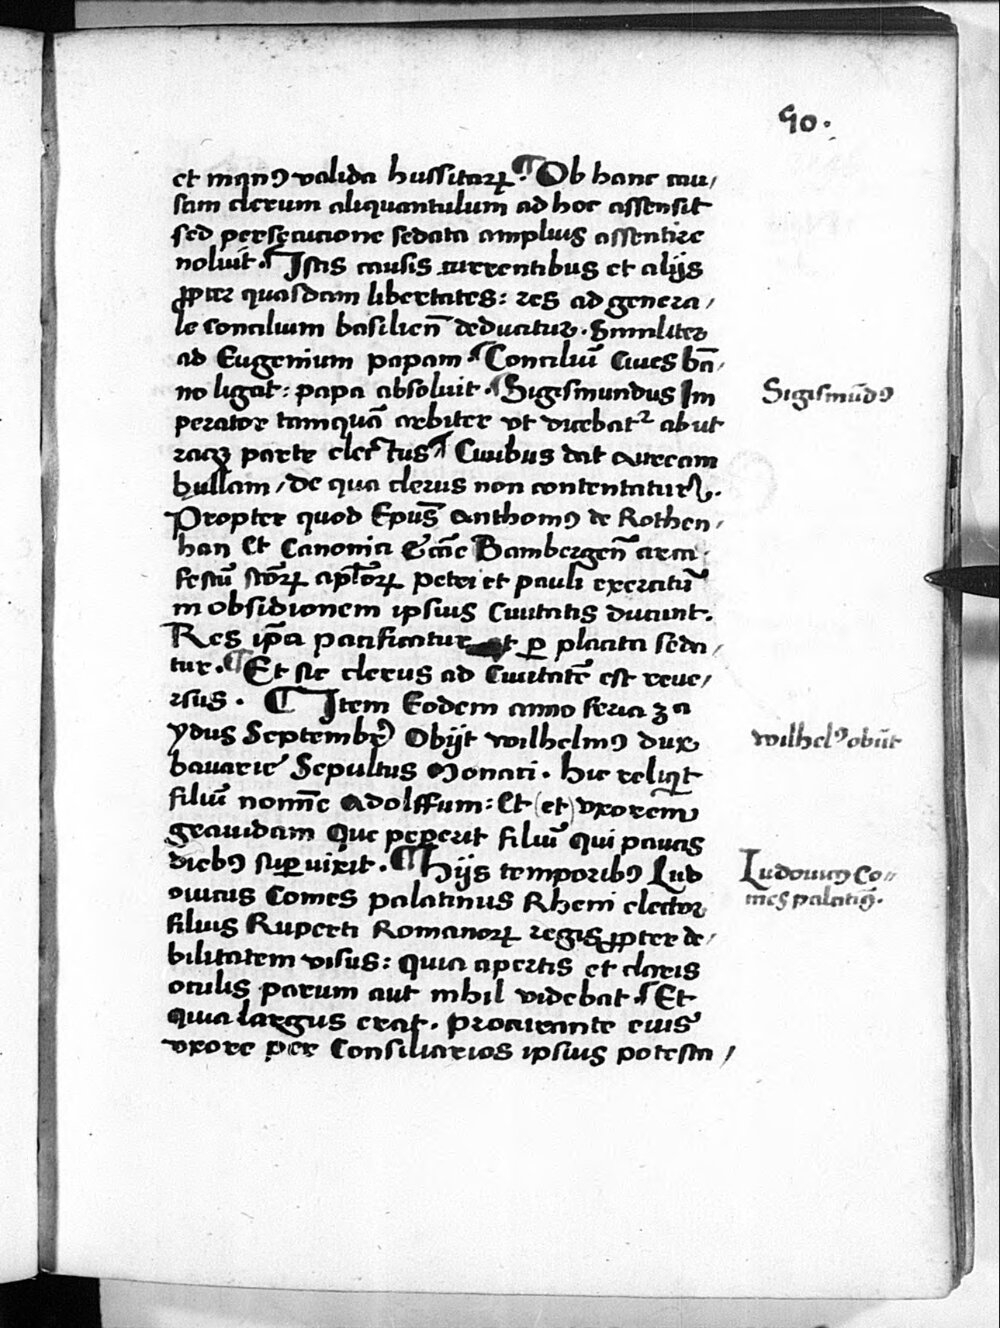 90.
et manꝰ valida hussitaꝝ. ¶ Ob hanc cau/
sam clerum aliquantulum ad hoc assensit
sed persecucione sedata amplius assentire
noluit. ¶ Istis causis currentibus et alijs
ꝓpter quasdam libertates: res ad genera/
le concilium basilien̄ deducitur. Similiter
ad Eugenium papam ¶ Conciliū Ciues bā/
no ligat: papa absoluit. ¶ Sigismundus Im
perator tamquā arbiter vt dicebatᷣ ab ut
raqꝫ parte electus ¶ Ciuibus dat auream
bullam / de qua clerus non contentatur.
Propter quod Epūs Anthoniꝰ de Rothen/
han Et Canonici Ecc̄ie Bambergen̄ circa
festū sc̄oꝝ apl̄oꝝ petri et pauli exercitū
in obsidionem ipsius Ciuitatis ducunt.
Res ip̄a pacificatur et ꝑ placita seda/
tur. ¶ Et sic clerus ad Ciuitatē est reue/
rsus. ¶ Item Eodem anno feria 3 a
ydus Septembr̄ Obijt wilhelmꝰ dux
bauarie Sepultus Monaci. hic reliq̄t
filiū nomīe Adolffum: Et (et) vxorem
grauidam Que peperit filiū qui paucis
diebꝰ suꝑuixit. ¶ Hijs temporibꝰ Lud
ouicus Comes palatinus Rheni elector
filius Ruperti Romanoꝝ regis ꝓpter de/
bilitatem visus: quia apertis et claris
oculis parum aut nihil videbat. ¶ Et
quia largus erat. Procurante eius
vxore per Consiliarios ipsius potesta /
Sigismūdꝰ
wilhelꝰ obiit
Ludouicꝰ Co=
mes palatinꝰ.